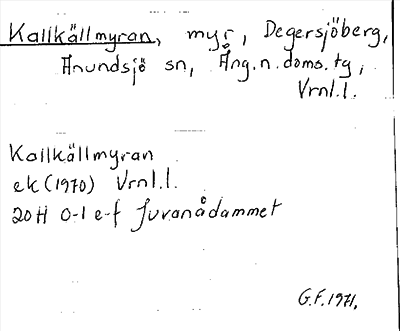 Kallkällmyran, myr, Degersjöberg,
Anundsjö sn, Ång.n.doms.tg,
Vrnl.l.
Kallkällmyran
ek (1970) Vrnl.l.
20H 0-1 e-f Juvanådammet
G.F. 1971.